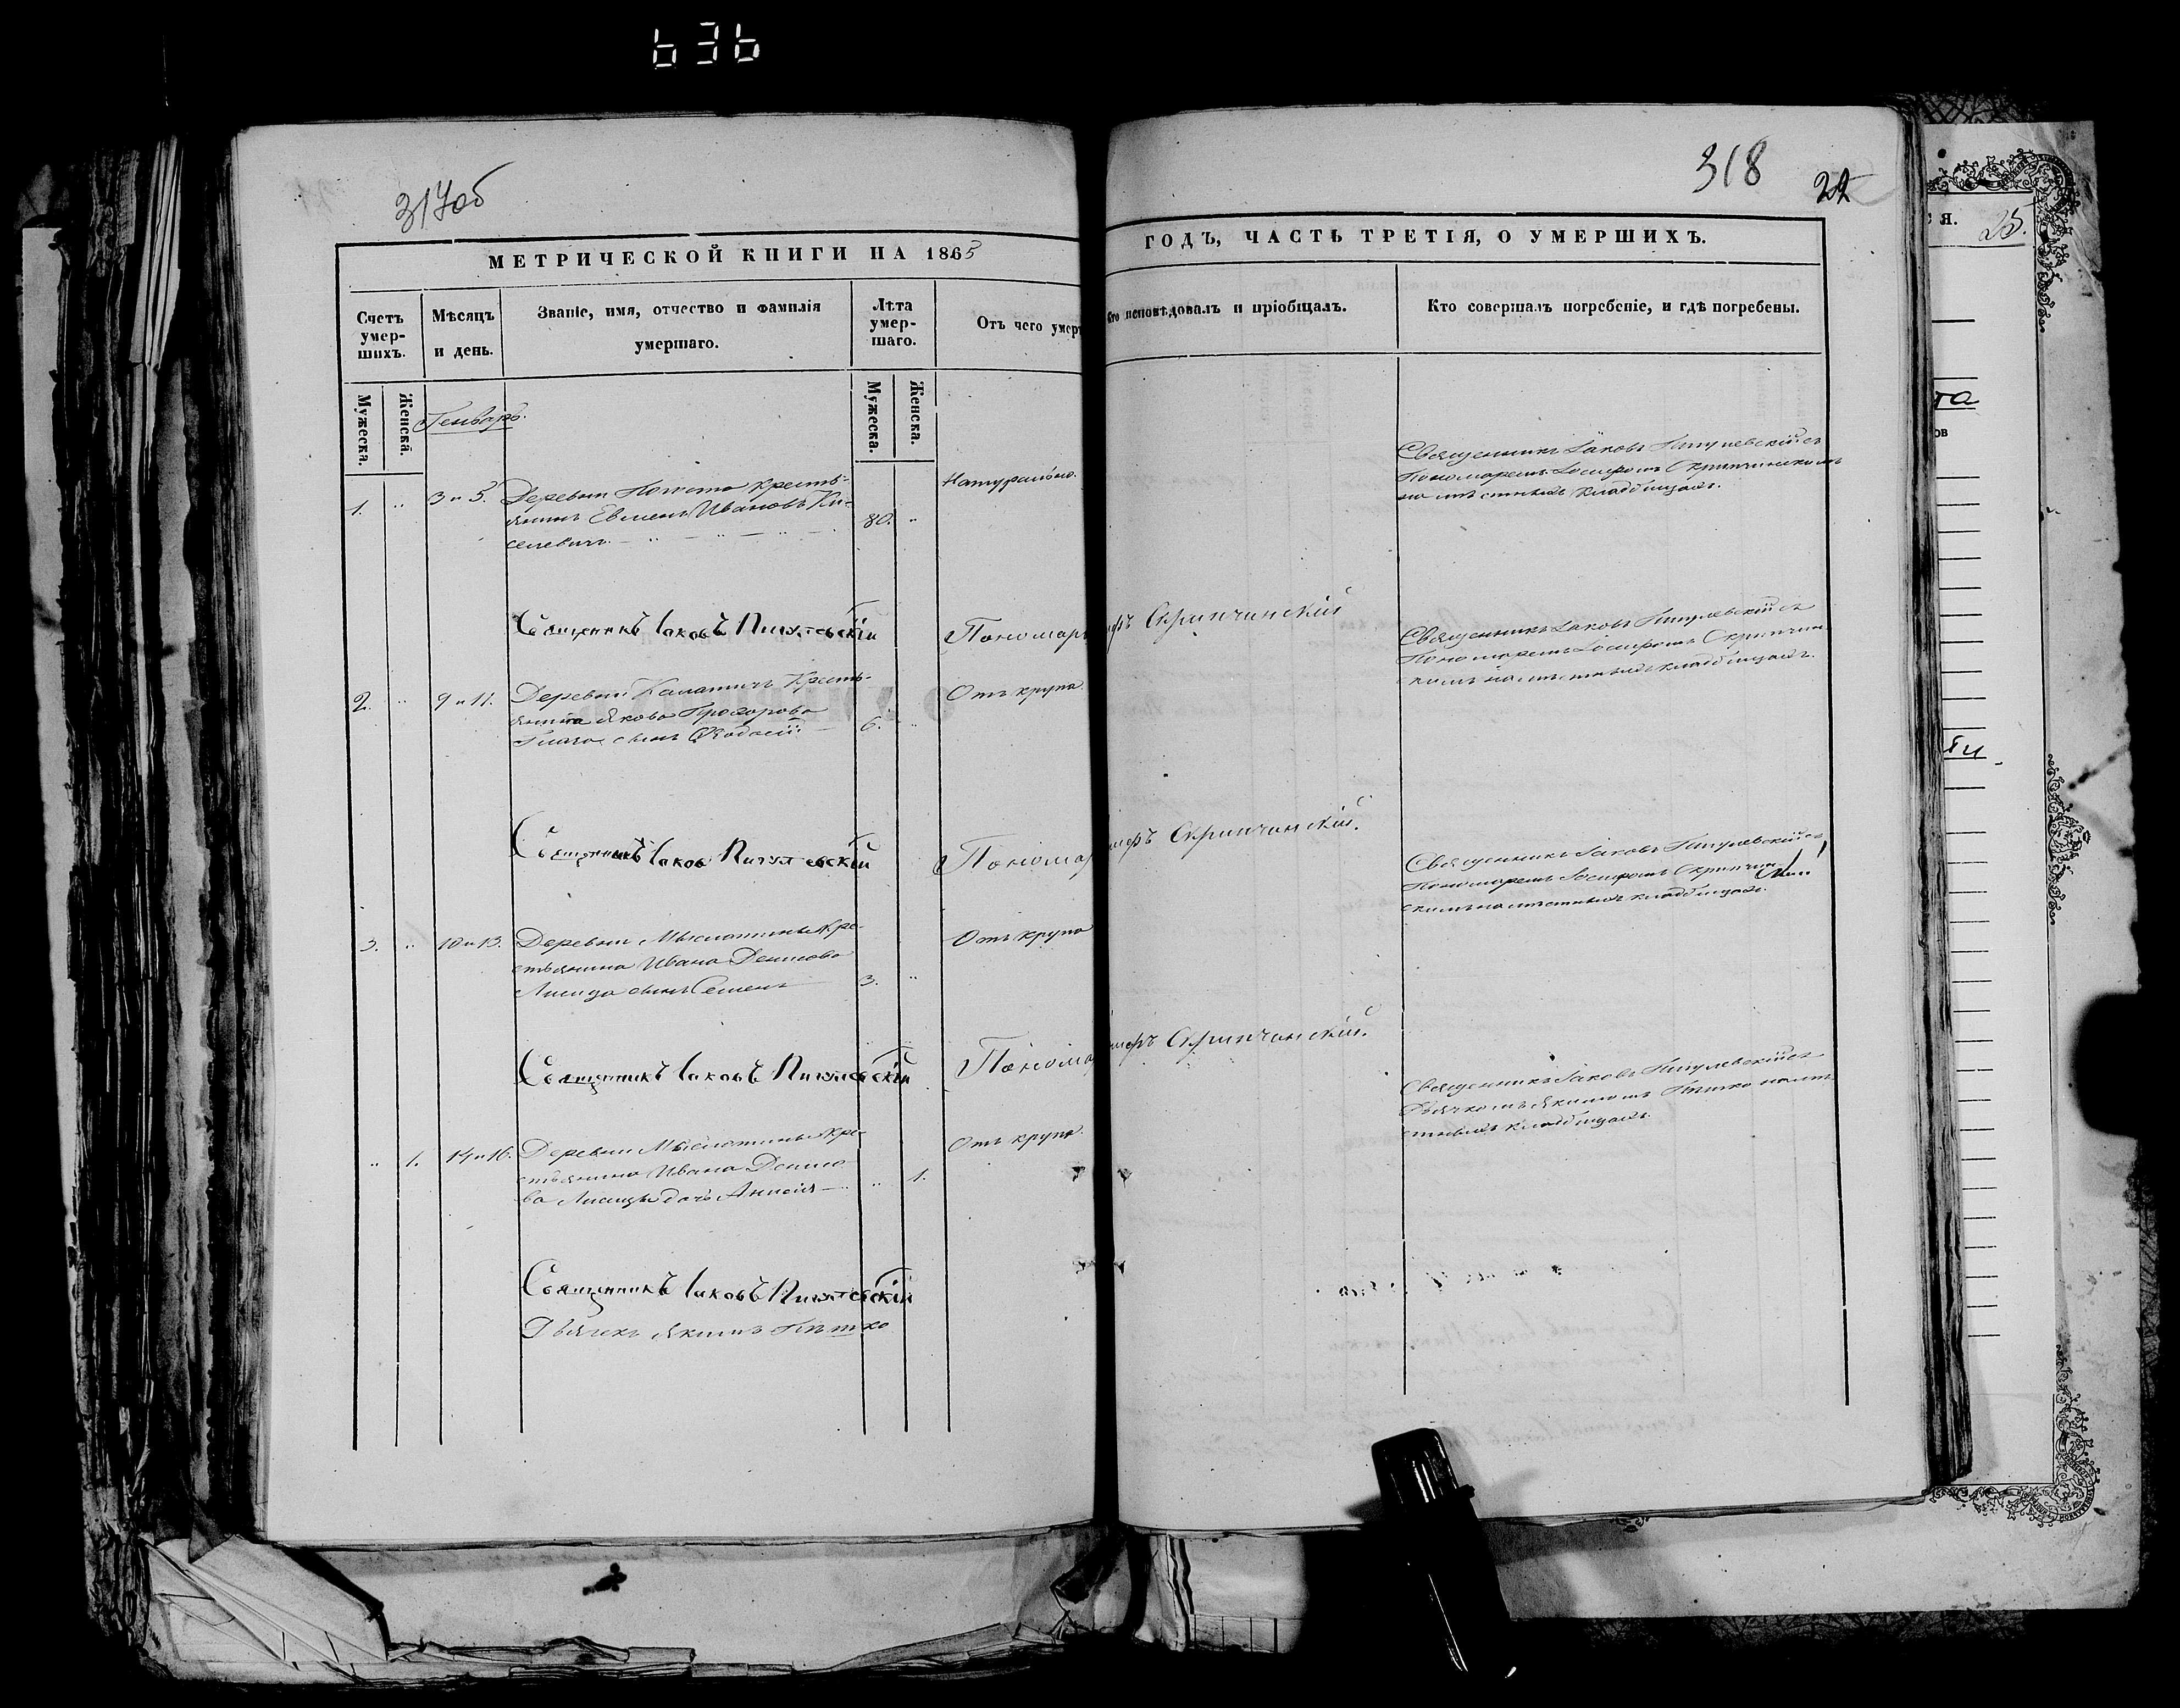 636
317об
318
22
МЕТРИЧЕСКОЙ КНИГИ НА 1865
ГОДЪ, ЧАСТЬ ТРЕТІЯ, О УМЕРШИХЪ.
Счетъ умер-шихъ.
Мѣсяцъ и день.
Званіе, имя, отчество и фамилія умершаго.
Лѣта умер-шаго.
Отъ чего умер
исповѣдовалъ и пріобщалъ.
Кто совершалъ погребеніе, и гдѣ погребены.
Мужеска.
Женска.
Мужеска.
Женска.
Генварь.
1. " 3 и 5. Деревни кресть-
янинъ Евменъ Ивановъ Ки-
селевичъ 80. "
Натурально.
Священникъ Іаковъ Пигулевскій съ
Пономаремъ Іосифомъ Скрипчинскимъ
на мѣстныхъ кладбищахъ.
Священникъ Іаковъ Пигулевскій
Пономарь
ифъ Скрипчинскій
2. " 9 и 11. Деревни Кресть-
янина Якова Прохорова
сынъ Ѳеодосій 6. "
Отъ крупа
Священникъ Іаковъ Пигулевскій съ
Пономаремъ Іосифомъ Скрипчин-
скимъ на мѣстныхъ кладбищахъ.
Священникъ Іаковъ Пигулевскій
Пономар
сифъ Скрипчинскій.
3. " 10 и 13. Деревни Мыслотины Кре-
стьянина Ивана Денисова
Лисицы сынъ Семенъ 3. "
Отъ крупа
Священникъ Іаковъ Пигулевскій съ
Пономаремъ Іосифомъ Скрипчин-
скимъ на мѣстныхъ кладбищахъ.
Священникъ Іаковъ Пигулевскій
Понома
сифъ Скрипчинскій.
" 1. 14 и 16. Деревни Мыслотины Кре-
стьянина Ивана Денисо-
ва Лисицы дочь Анисія " 1.
Отъ крупа.
Священникъ Іаковъ Пигулевскій съ
Дьячкомъ Якимомъ на мѣ-
стныхъ кладбищахъ.
Священникъ Іаковъ Пигулевскій
Дьячекъ Якимъ
СЯ.
25.
та
ов